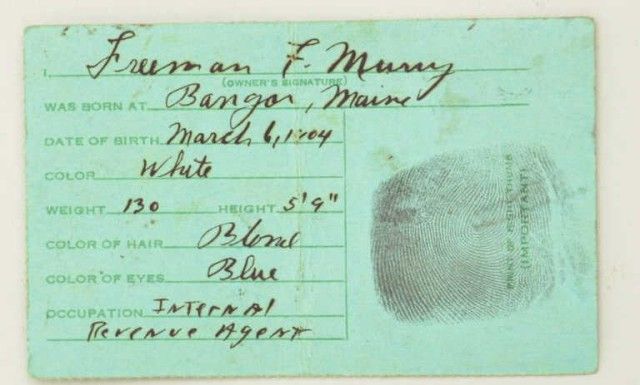 I, Freeman F. Murry
(OWNER'S SIGNATURE)
WAS BORN AT Bangor, Maine
DATE OF BIRTH March 6, 1904
COLOR White
WEIGHT 130 HEIGHT 5'9"
COLOR OF HAIR Blond
COLOR OF EYES Blue
OCCUPATION Internal
Revenue Agent
PRINT OF RIGHT THUMB
(IMPORTANT)